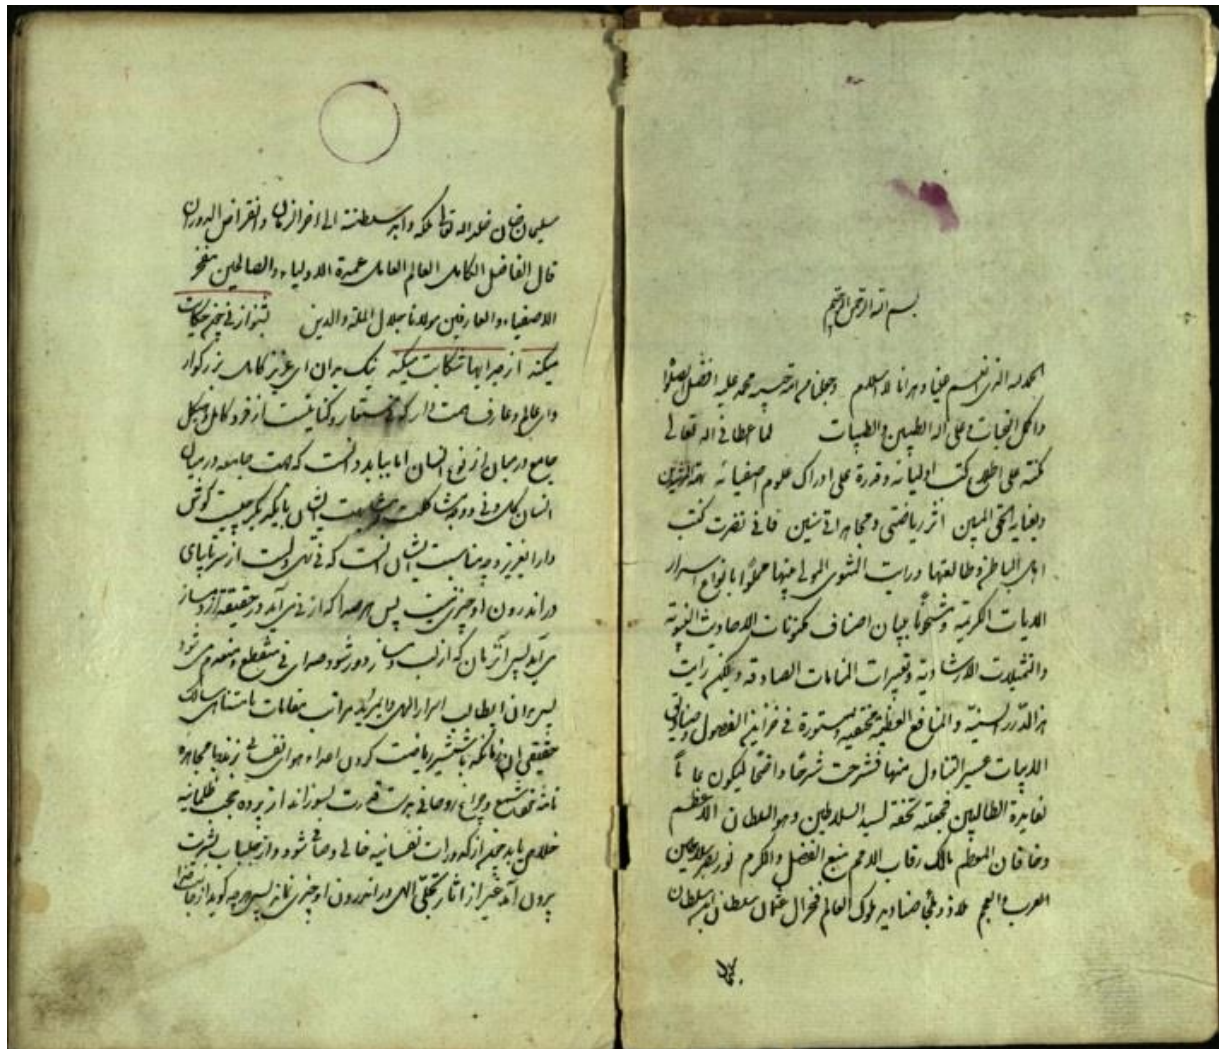 بسم الله الرحمن الرحیم
الحمد لله الذی انعم علینا وهدانا للاسلام وجعلنا من امة حبیبه محمد علیه افضل الصلوات
واکمل التحیات وعلی آله الطیبین والطیبات لما اعطانی الله تعالی
مکنة علی اطلاع کتب اولیائه وقدرة علی ادراک علوم اصفیائه
وبعنایة الحق المبین اثر ریاضتی ومجاهداتی سنین فانی نظرت کتب
اهل الباطن وطالعتها ورایت المثنوی المولی منها مملوا بانواع اسرار
الایات الکریمة ومشحونا ببیان اصناف مکنونات الاحادیث النبویة
والتمثیلات الارشادیة وتعبیرات المنامات الصادقة ولکن رایت
هذا الدرر السنیة والمنافع العظیمة مختفیة ومستورة فی خزاین الفصول
الابیات عسیر التناول منها فشرحت شرحا واضحا لیکون
لفایدة الطالبین فجعلته تحفة لسید السلاطین وهو السلطان الاعظم
وخاقان المعظم مالک رقاب الامم منبع الفضل والکرم نور بصر سلاطین
العرب والعجم ملاذ وملجأ صنادید ملوک العالم فخر آل عثمان سلطان ابن سلطان
سلیمان خان خلد الله تعالی ملکه وابد سلطنته الی اخر الزمان وانقراض الدوران
قال الفاضل الکامل العالم العامل عمدة الاولیاء والصالحین مفخر
الاصفیاء والعارفین مولانا جلال الملة والدین بشنو از نی چون حکایت
میکند از جداییها شکایت میکند نیک بدان ای عزیز کامل بزرکوار
وای عالم وعارف همت دار که نی استعاره وکنایتست از فرد کامل وهیکل
جامع در میان از نوع انسان اما بباید دانست که جهت جامعه در میان
انسان کامل ونی ووجه مشاکلت ومشابهت ایشان با یکدیکر چیست کوش
دار ای عزیز وجه مناسبت ایشان انست که نی تهی است از سر تا پای
در اندرون او چیزی نیست پس هر صدا که از نی می آید در حقیقة از دمساز
می آید پس آن زمان که از لب دمساز دور شود صدای نی منقطع ومنعدم می شود
پس بدان ای طالب اسرار الهی مراتب مقامات نامتناهی سالک
حقیقی آن زمانکه با شمشیر ریاضت کردن اعداء هوای نفسانی بزند با مجاهده
تامه شمع وچراغ روحانی بدست قدرت بسوزاند از پرده حجب ظلمانیه
خلاص یابد چنین از کدورات نفسانیه خالی وصافی شود واز جلباب بشریت
بیرون آید غیر از اثار تجلی الهی در اندرون او چیزی نماند پس هر چه کوید از جانب